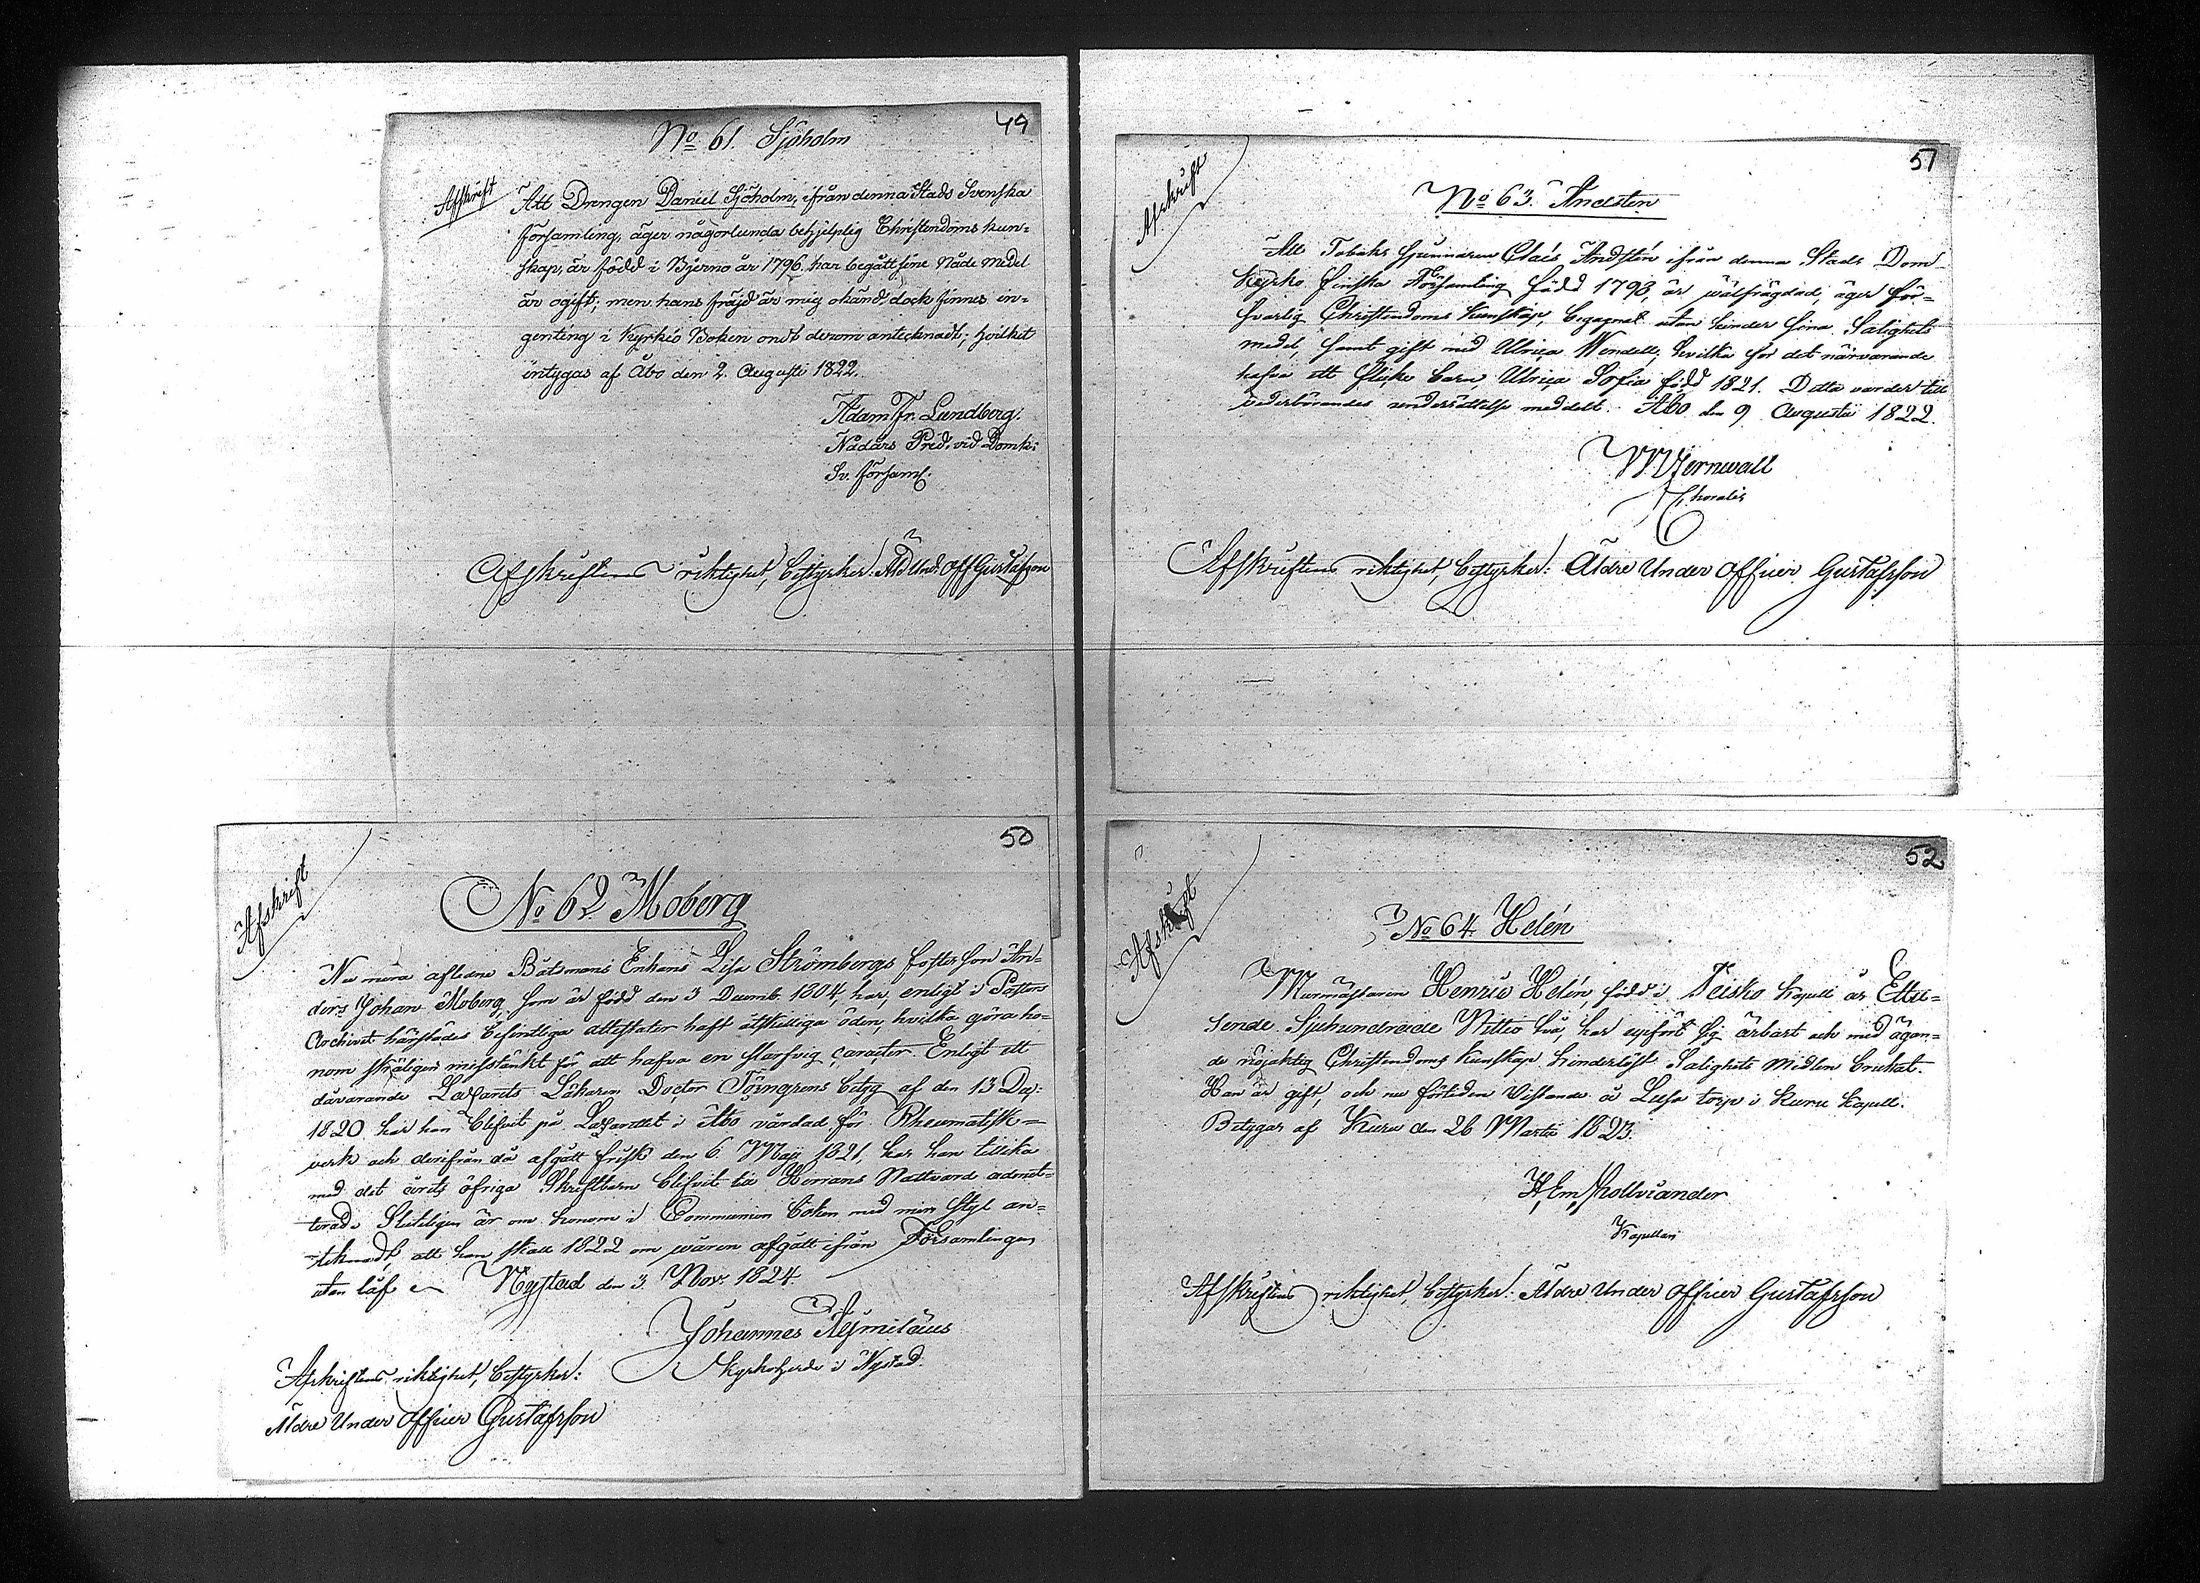 49
No 61. Sjöholm
Afskrift
Att Drengen Daniel Sjöholm, ifrån denna Stads Svenska
församling, äger någorlunda behjelplig Christendoms kun=
skap, är född i Bjerno år 1796. har begått sine Nåde medel
är ogift; men hans fräjd är mig okänd, dock finnes in=
genting i Kyrkio Boken ondt derom antecknadt; hvilket
intygas af Åbo den 2. Augusti 1822.
Adam Fr. Lundberg.
Nådårs Pred. vid Domk:
Sv. församl.
Afskriftens riktighet, bestyrker: Äld Und: Off Gustafsson
50
Afskrift
No 62 Moberg
Nu mera aflidne Båtsmans Enkans Lisa Strömbergs fosterson An=
ders Johan Moberg, som är född den 3 Decemb. 1804, har, enligt i Pastors
Archivet härstädes befintliga attestater haft åtskilliga öden, hvilka göra ho=
nom skäligen misstänkt för att hafva en slarfvig caracter. Enligt ett
dåvarande Lazarets Läkaren Doctor Törngrens betyg af den 13 Dec:
1820 har han blifvit på Lazarettet i Åbo vårdad för Rheumatisk=
verk och derifrån då afgått frisk den 6. Maji 1821, har han tillika
med det årets öfriga Skriftbarn blifvit till Herrans Nattvard admit=
terad. Slutligen är om honom i Communion boken med min styl an=
teknadt, att han skall 1822 om våren afgått ifrån Församlingen
utan låf. Nystad den 3. Nov. 1824.
Johannes Aejmeläus
Kyrkoherde i Nystad.
Afskriftens riktighet, bestyrker:
Äldre Under Officer Gustafsson
51
Afskrift
No 63. Andsten
Att Tobaks Spinnaren Claës Andstén ifrån denna Stads Dom-
kyrko finska Församling född 1793, är wälfrägdad, äger för=
svarlig Christendoms kunskap, begagnat utan hinder sina Salighets
medel, samt gift med Ulrica Wendell, hvilka för det närvarande
hafva ett flicke barn Ulrica Sofia född 1821. Detta varder till
vederbörandes underrättelse meddelt. Åbo den 9 Augustii 1822.
W. Hjernwall
Choralis
Afskriftens riktighet, bestyrker: Äldre Under Officer Gustafsson
52
Afskrift
No 64. Helén
Murmästaren Henric Helén född i Teisko Kapell år Ettu=
sende Sjuhundrade Nittio två, har uppfört sig ärbart och med ägan=
de nöjaktig Christendoms kunskap hinderlöst Salighets Medlen brukat.
Han är gift, och nu förtiden vistande å Lusa torp i Kuru Kapell.
Betygar af Kuru den 26 Martii 1823.
H. Em. Hollsiander
Kapellan
Afskriftens riktighet, bestyrker: Äldre Under Officer Gustafsson